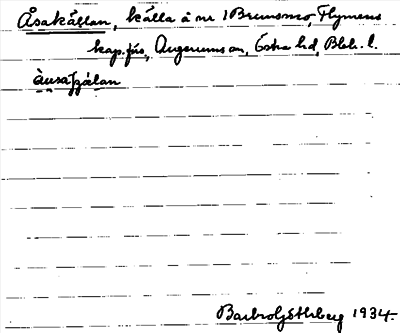 Åsakällan, källa å nr 1 Brunsmo, Flymens
kap.förs, Augerums sn, Östra hd, Blek. l.
Barbro Ethlberg 1934.